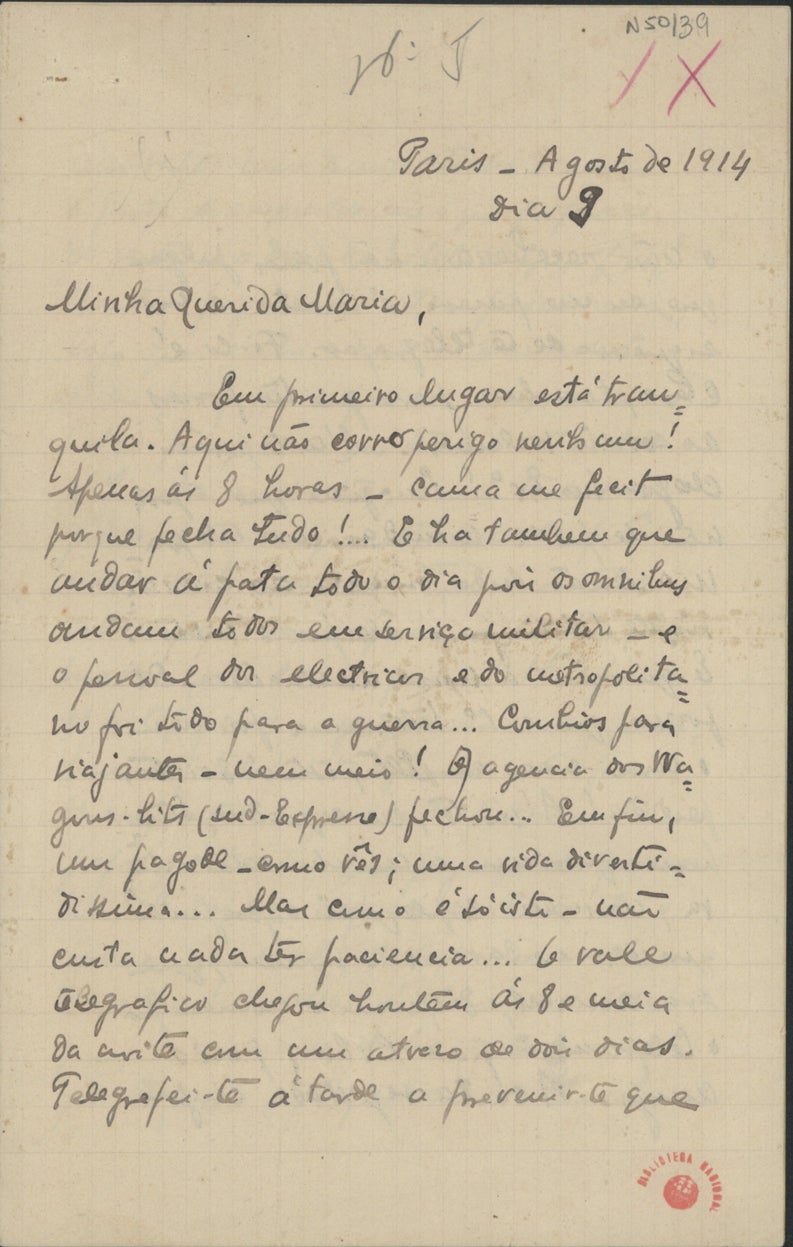 N50/39
Nº. I
Paris – Agosto de 1914
Dia 9
Minha Querida Maria,
Em primeiro lugar está tran=
quila. Aqui não corro perigo nenhum!
Apenas ás 8 horas – cama me fecit
porque fecha tudo!... E ha tambem que
andar á pata todo o dia pois os omnibus
andam todos em serviço militar – e
o pessoal dos electricos e do metropolita=
no foi todo para a guerra... Combios para
viajantes – nem meio! A agencia dos Wa=
gons-lits (Sud-Express) fechou... Emfim,
um pagode – como vês; uma vida diverti=
dissima... Mas como é só isto – não
custa nada ter paciencia... O vale
telegrafico chegou hontem ás 8 e meia
da noite com um atrazo de dois dias.
Telegrafei-te á tarde a prevenir-te que
BIBLIOTECA NACIONAL